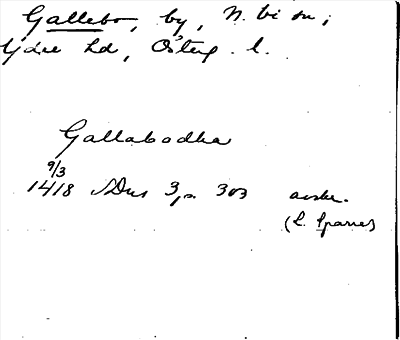 Gallebo, by, N. bi sn,
Ydre hd, Österg. l.
Gallabodha
9/3
1418 SDns 3, p. 303 avskr.
(L. Sparre)